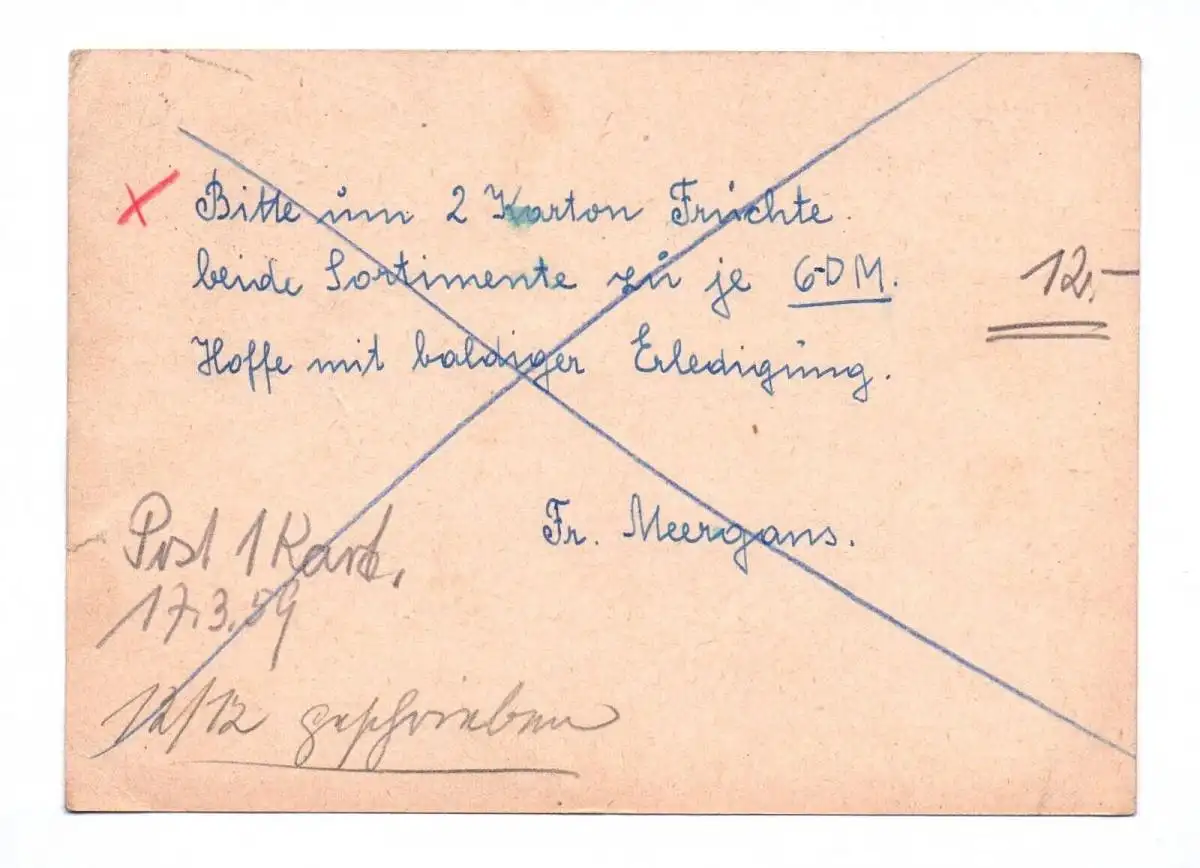 Bitte um 2 Karton Früchte.
beide Sortimente zu je 6-DM.
12.-
Hoffe mit baldiger Erledigung.
Fr. Meergans.
Post 1 Kart.
17.3.59
12/12 geschrieben